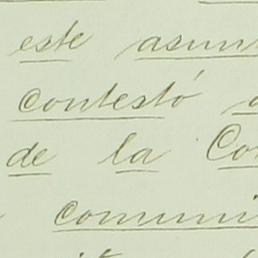 este asunt
contestó a
de la Co
comuni